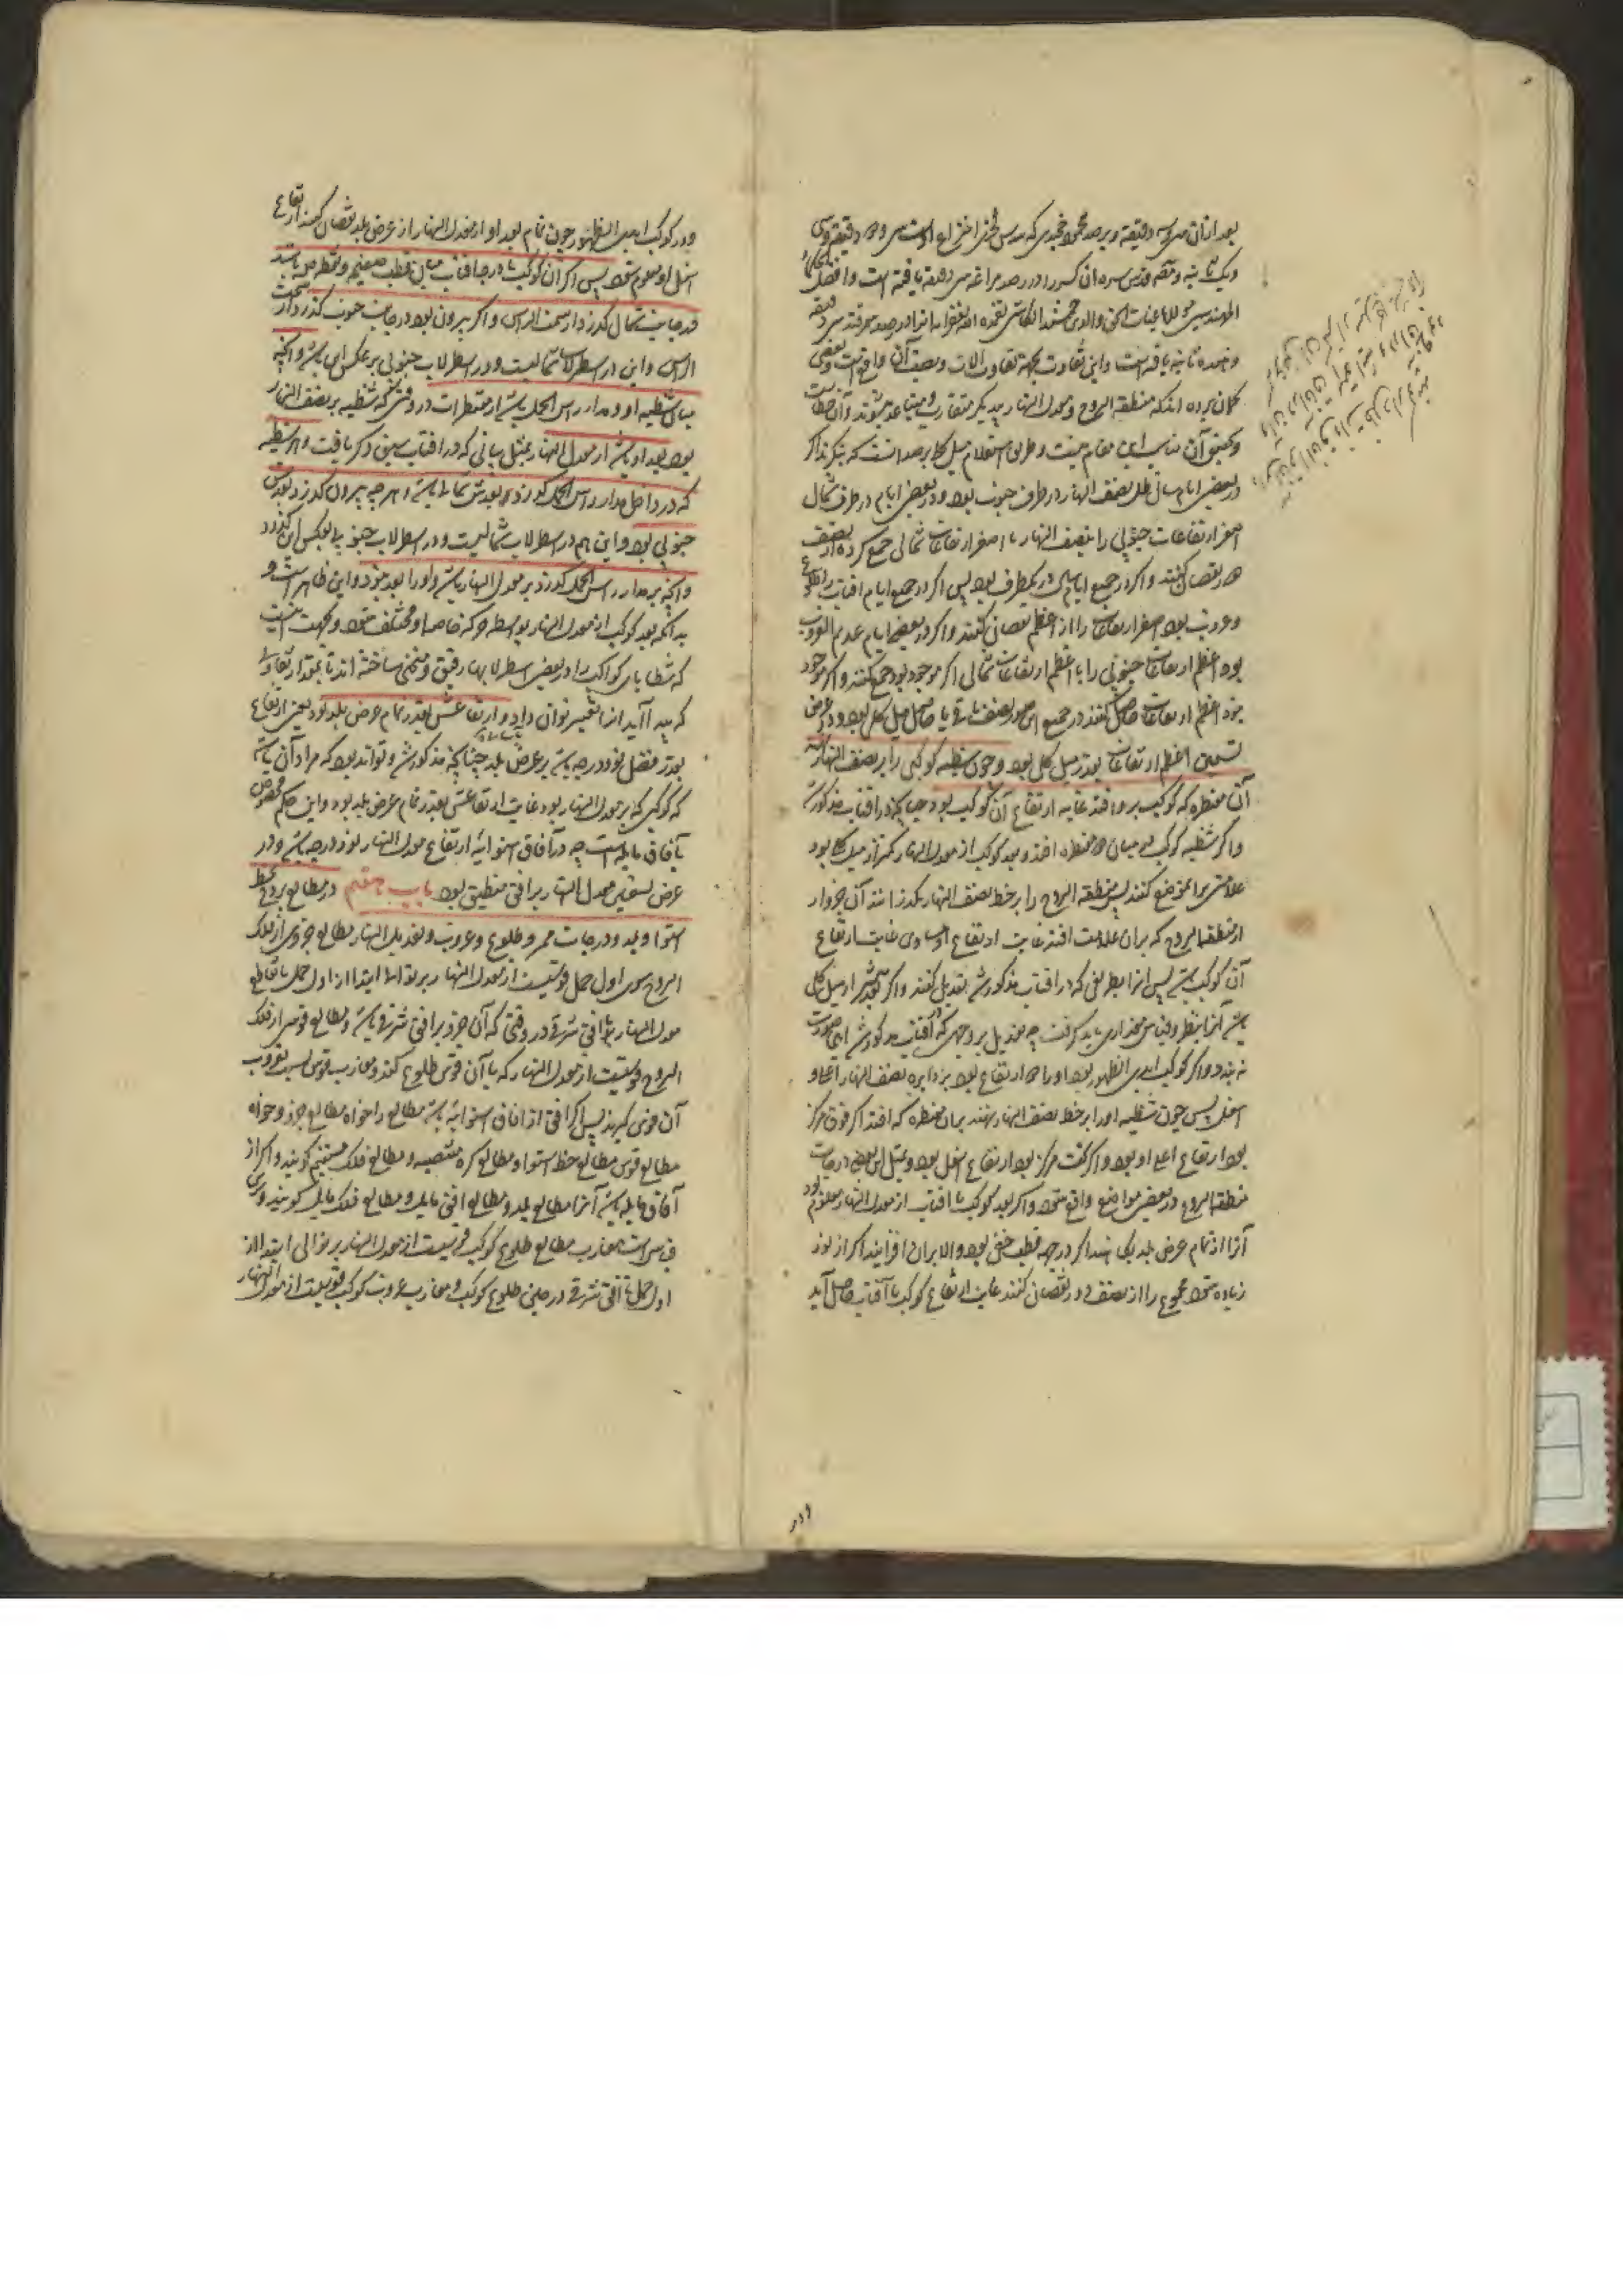 بعد ازان سی و سه دقیقه و برصد محمود خجندی که سدس فخری اختراع اوست سی و دو دقیقه و سی
و یک ثانیه و محقق قدس سره آن کسر را در رصد مراغه سی دقیقه یافته است و افضل
المهندسین غیاث الحق والدین جمشید الکاشی تغمده الله بغفرانه انرا در رصد سمرقند سی دقیقه
و هفده ثانیه یافته است و این تفاوت بجهة تفاوت آلات و نصب آن واقع است و بعضی
گمان برده اند که منطقة البروج و معدل النهار بیکدیگر متقارب و متباعد میشوند و آن خطاست
و تحقیق آن مناسب این مقام نیست و طریق استعلام میل کلی برصد آنست که بنگرند اگر
در بعضی ایام سال ظل نصف النهار در طرف جنوب بود و در بعضی ایام در طرف شمال
اصغر ارتفاعات جنوبی را بنصف النهار با اصغر ارتفاعات شمالی جمع کرده از نصف
دور نقصان کنند و اگر در جمیع ایام سال در یکطرف بود پس اگر در جمیع ایام آفتاب را طلوع
و غروب بود اصغر ارتفاعات را از اعظم نقصان کنند و اگر در بعضی ایام عدیم الغروب
بود اعظم ارتفاعات جنوبی را با اعظم ارتفاعات شمالی اگر موجود بود جمع کنند و اگر موجود
نبود اعظم ارتفاعات حاصل کنند در جمیع این صور نصف باقی یا حاصل میل کلی بود و در عرض
تسعین اعظم ارتفاعات بقدر میل کلی بود و چون شظیه کوکبی را بر نصف النهار نهند
آن مقنطره که کوکب برو افتد غایة ارتفاع آن کوکب بود چنانچه در آفتاب مذکور شد
و اگر شظیه کوکب در میان دو مقنطره افتد و بعد کوکب از معدل النهار کمتر از میل کلی بود
علامتی بر آن موضع کنند پس منطقة البروج را بر خط نصف النهار بگذرانند آن جزو از
از منطقة البروج که بران علامت افتد غایت ارتفاع او مساوی غایت ارتفاع
آن کوکب باشد پس انرا بطریقی که در آفتاب مذکور شد تعدیل کنند و اگر بعدش از میل کلی
باشد آنرا بنظر و قیاس مقداری باید گرفت چه تعدیل بر وجهی که در آفتاب مذکور شد اینجا صورت
نه بندد و اگر کوکب ابدی الظهور بود او را دو ارتفاع بود بر دایره نصف النهار اعلی و
اسفل پس چون شظیه او را بر خط نصف النهار نهند بران مقنطره که افتد اگر فوق مرکز
بود ارتفاع اعلی او بود و اگر تحت مرکز بود ارتفاع اسفل بود و مثل این بعضی درجات
منطقة البروج در بعضی مواضع واقع شود و اگر بعد کوکب یا آفتاب از معدل النهار معلوم بود
آنرا از تمام عرض بلد بکاهند اگر در جهة قطب خفی بود و الا بران افزایند اگر از نود
زیاده شود مجموع را از نصف دور نقصان کنند غایت ارتفاع کوکب یا آفتاب حاصل آید
و در
و در کوکب ابدی الظهور چون تمام بعد او از معدل النهار از عرض بلد نقصان کنند ارتفاع
اسفل او معلوم شود پس اگر آن کوکب یا درجه آفتاب میان قطب صفیحه و مقنطره ص باشد
در جانب شمال گذرد از سمت الراس و اگر بیرون بود در جانب جنوب گذرد از سمت
الراس و این در اسطرلاب شمالیست و در اسطرلاب جنوبی بر عکس این باشد و آنچه
میان شظیه او و مدار راس الحمل باشد از مقنطرات در وقتی که شظیه بر نصف النهار
بود بعد او باشد از معدل النهار بمثل بیانی که در آفتاب سبق ذکر یافت و هر شظیه
که در داخل مدار راس الحمل گذرد بعدش شمالی باشد و هر چه بیرون گذرد بعدش
جنوبی بود و این هم در اسطرلاب شمالیست و در اسطرلاب جنوبی بعکس این گذرد
و آنچه بر مدار راس الحمل گذرد بر معدل النهار باشد و او را بعد نبود و این ظاهر است و
بدانکه بعد کوکب از معدل النهار بواسطه حرکة خاصه او مختلف شود و بجهت اینست
که شظایای کواکب را در بعضی اسطرلابها رقیق و منحنی ساخته اند تا بمقدار تفاوت
که پیدا آید انرا تغییر توان داد و ارتفاعش بقدر تمام عرض بلد بود یعنی ارتفاع
بقدر فضل نود درجه باشد بر عرض بلد چنانچه مذکور شد و تواند بود که مراد آن باشد
که کوکبی که بر معدل النهار بود غایت ارتفاعش بقدر تمام عرض بلد بود و این حکم مخصوص
بآفاق مایله است چه در آفاق استوائیه ارتفاع معدل النهار نود درجه باشد و در
عرض تسعین معدل النهار بر افق منطبق بود باب هفتم در مطالع بروج بخط
استوا و بلد و درجات ممر و طلوع و غروب و تعدیل النهار مطالع جزوی از فلک
البروج سوی اول حمل قوسیست از معدل النهار بر توالی ابتدا از اول حمل تا تقاطع
معدل النهار با افق شرقی در وقتی که آن جزو بر افق شرقی باشد و مطالع قوسی از فلک
البروج قوسیست از معدل النهار که با آن قوس طلوع کند و مغارب قوس نسبت بغروب
آن قوس گیرند پس اگر افق از آفاق استوائیه باشد مطالع را خواه مطالع جزو و خواه
مطالع قوس مطالع خط استوا و مطالع کره منتصبه و مطالع فلک مستقیم گویند و اگر از
آفاق مایله باشد آنرا مطالع بلد و مطالع افق مایل و مطالع فلک مایل گویند و برین
قیاس است مغارب مطالع طلوع کوکب قوسیست از معدل النهار بر توالی ابتدا از
اول حمل تا افق شرقی در حین طلوع کوکب و مغارب غروب کوکب قوسیست از معدل النهار